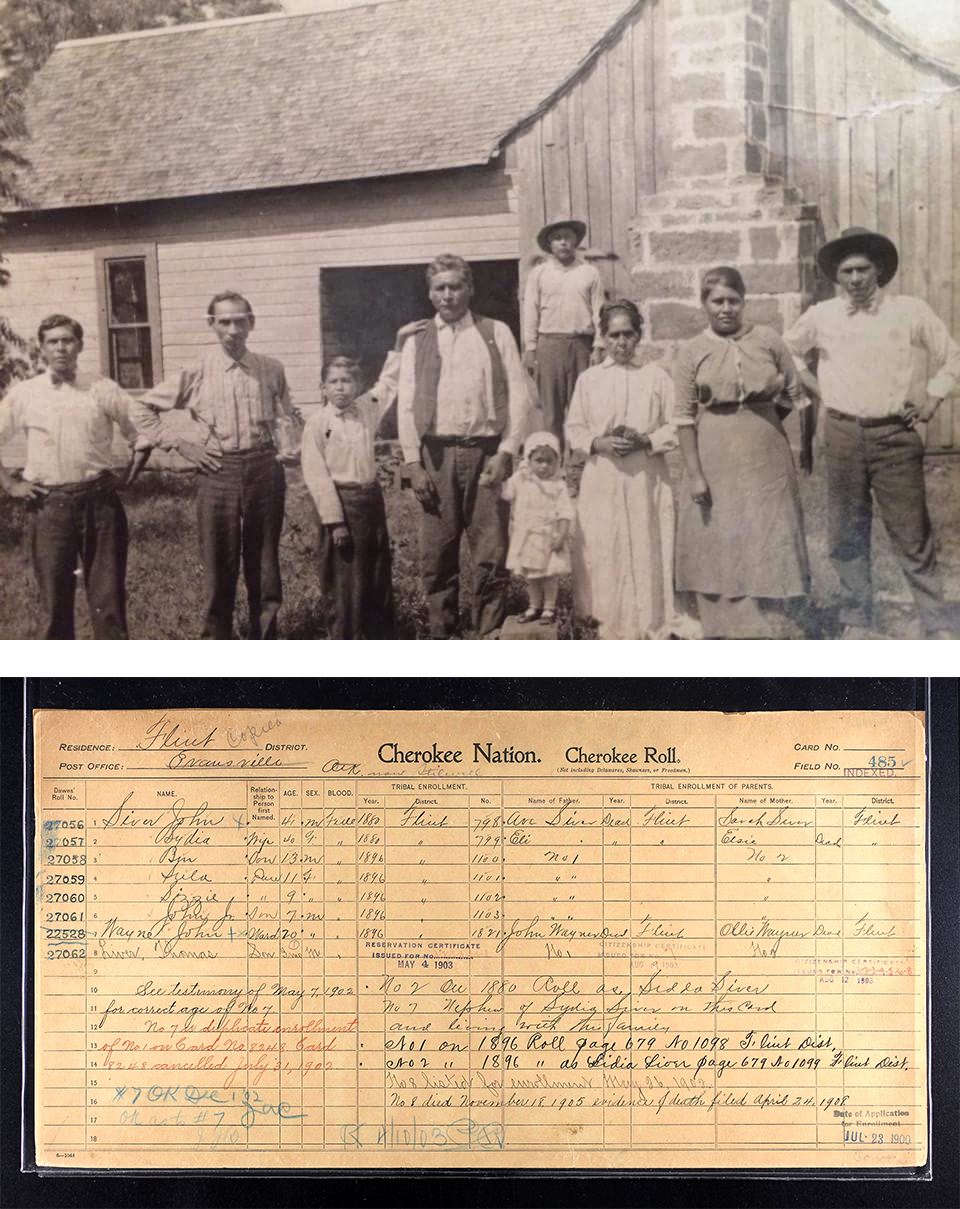 RESIDENCE: Flint DISTRICT. Copied
POST OFFICE: Evansville Ark now Stilwell
Cherokee Nation. Cherokee Roll.
(Not including Delawares, Shawnees, or Freedmen.)
CARD NO.
FIELD NO. 485
INDEXED.
Dawes' Roll No. NAME. Relationship to Person first Named. AGE. SEX. BLOOD. TRIBAL ENROLLMENT. TRIBAL ENROLLMENT OF PARENTS.
Year. District. No. Name of Father. Year. District. Name of Mother. Year. District.
27056 1 Siver John 41 M Full 1880 Flint 798 Ave Siver Dead Flint Sarah Siver Flint
27057 2 " Lydia Wife 40 F " 1880 " 799 Eli " " Elsie Dead "
27058 3 " Ben Son 13 M " 1896 " 1100 No 1 No 2
27059 4 " Dau 11 F " 1896 " 1101 " " "
27060 5 " Lizzie " 9 " " 1896 " 1102 " " "
27061 6 " John Jr Son 7 M " 1896 " 1103 " " "
22528 7 Wayne John Ward 20 " " 1896 " 1821 John Wayner Dead Flint Ollie Wayner Dead Flint
27062 8 Thomas Son M " No 1 No 2
RESERVATION CERTIFICATE
ISSUED FOR NO.
MAY 4 1903
CITIZENSHIP CERTIFICATE
ISSUED FOR NO.
AUG 1903
CITIZENSHIP CERTIFICATE
ISSUED FOR NO. 1-2-3-4-5-6-8
AUG 12 1903
9
10 See testimony of May 7, 1902 No 2 On 1880 Roll as Sidda Siver
11 for correct age of No 7 No 7 Nephew of Lydia Siver on this Card
12 No 7 is duplicate enrollment and living with the family
13 of No 1 on Card No 8248 Card No 1 on 1896 Roll page 679 No 1098 Flint Dist.
14 8248 cancelled July 31, 1902 No 2 " 1896 " as Lidia Siver page 679 No 1099 Flint Dist.
15 No 8 listed for enrollment May 26, 1902.
16 #7 OK Dec 1 02 No 8 died November 18 1905 evidence of death filed April 24, 1908
17 OK as to #7
18
Date of Application
for Enrollment
JUL 23 1900